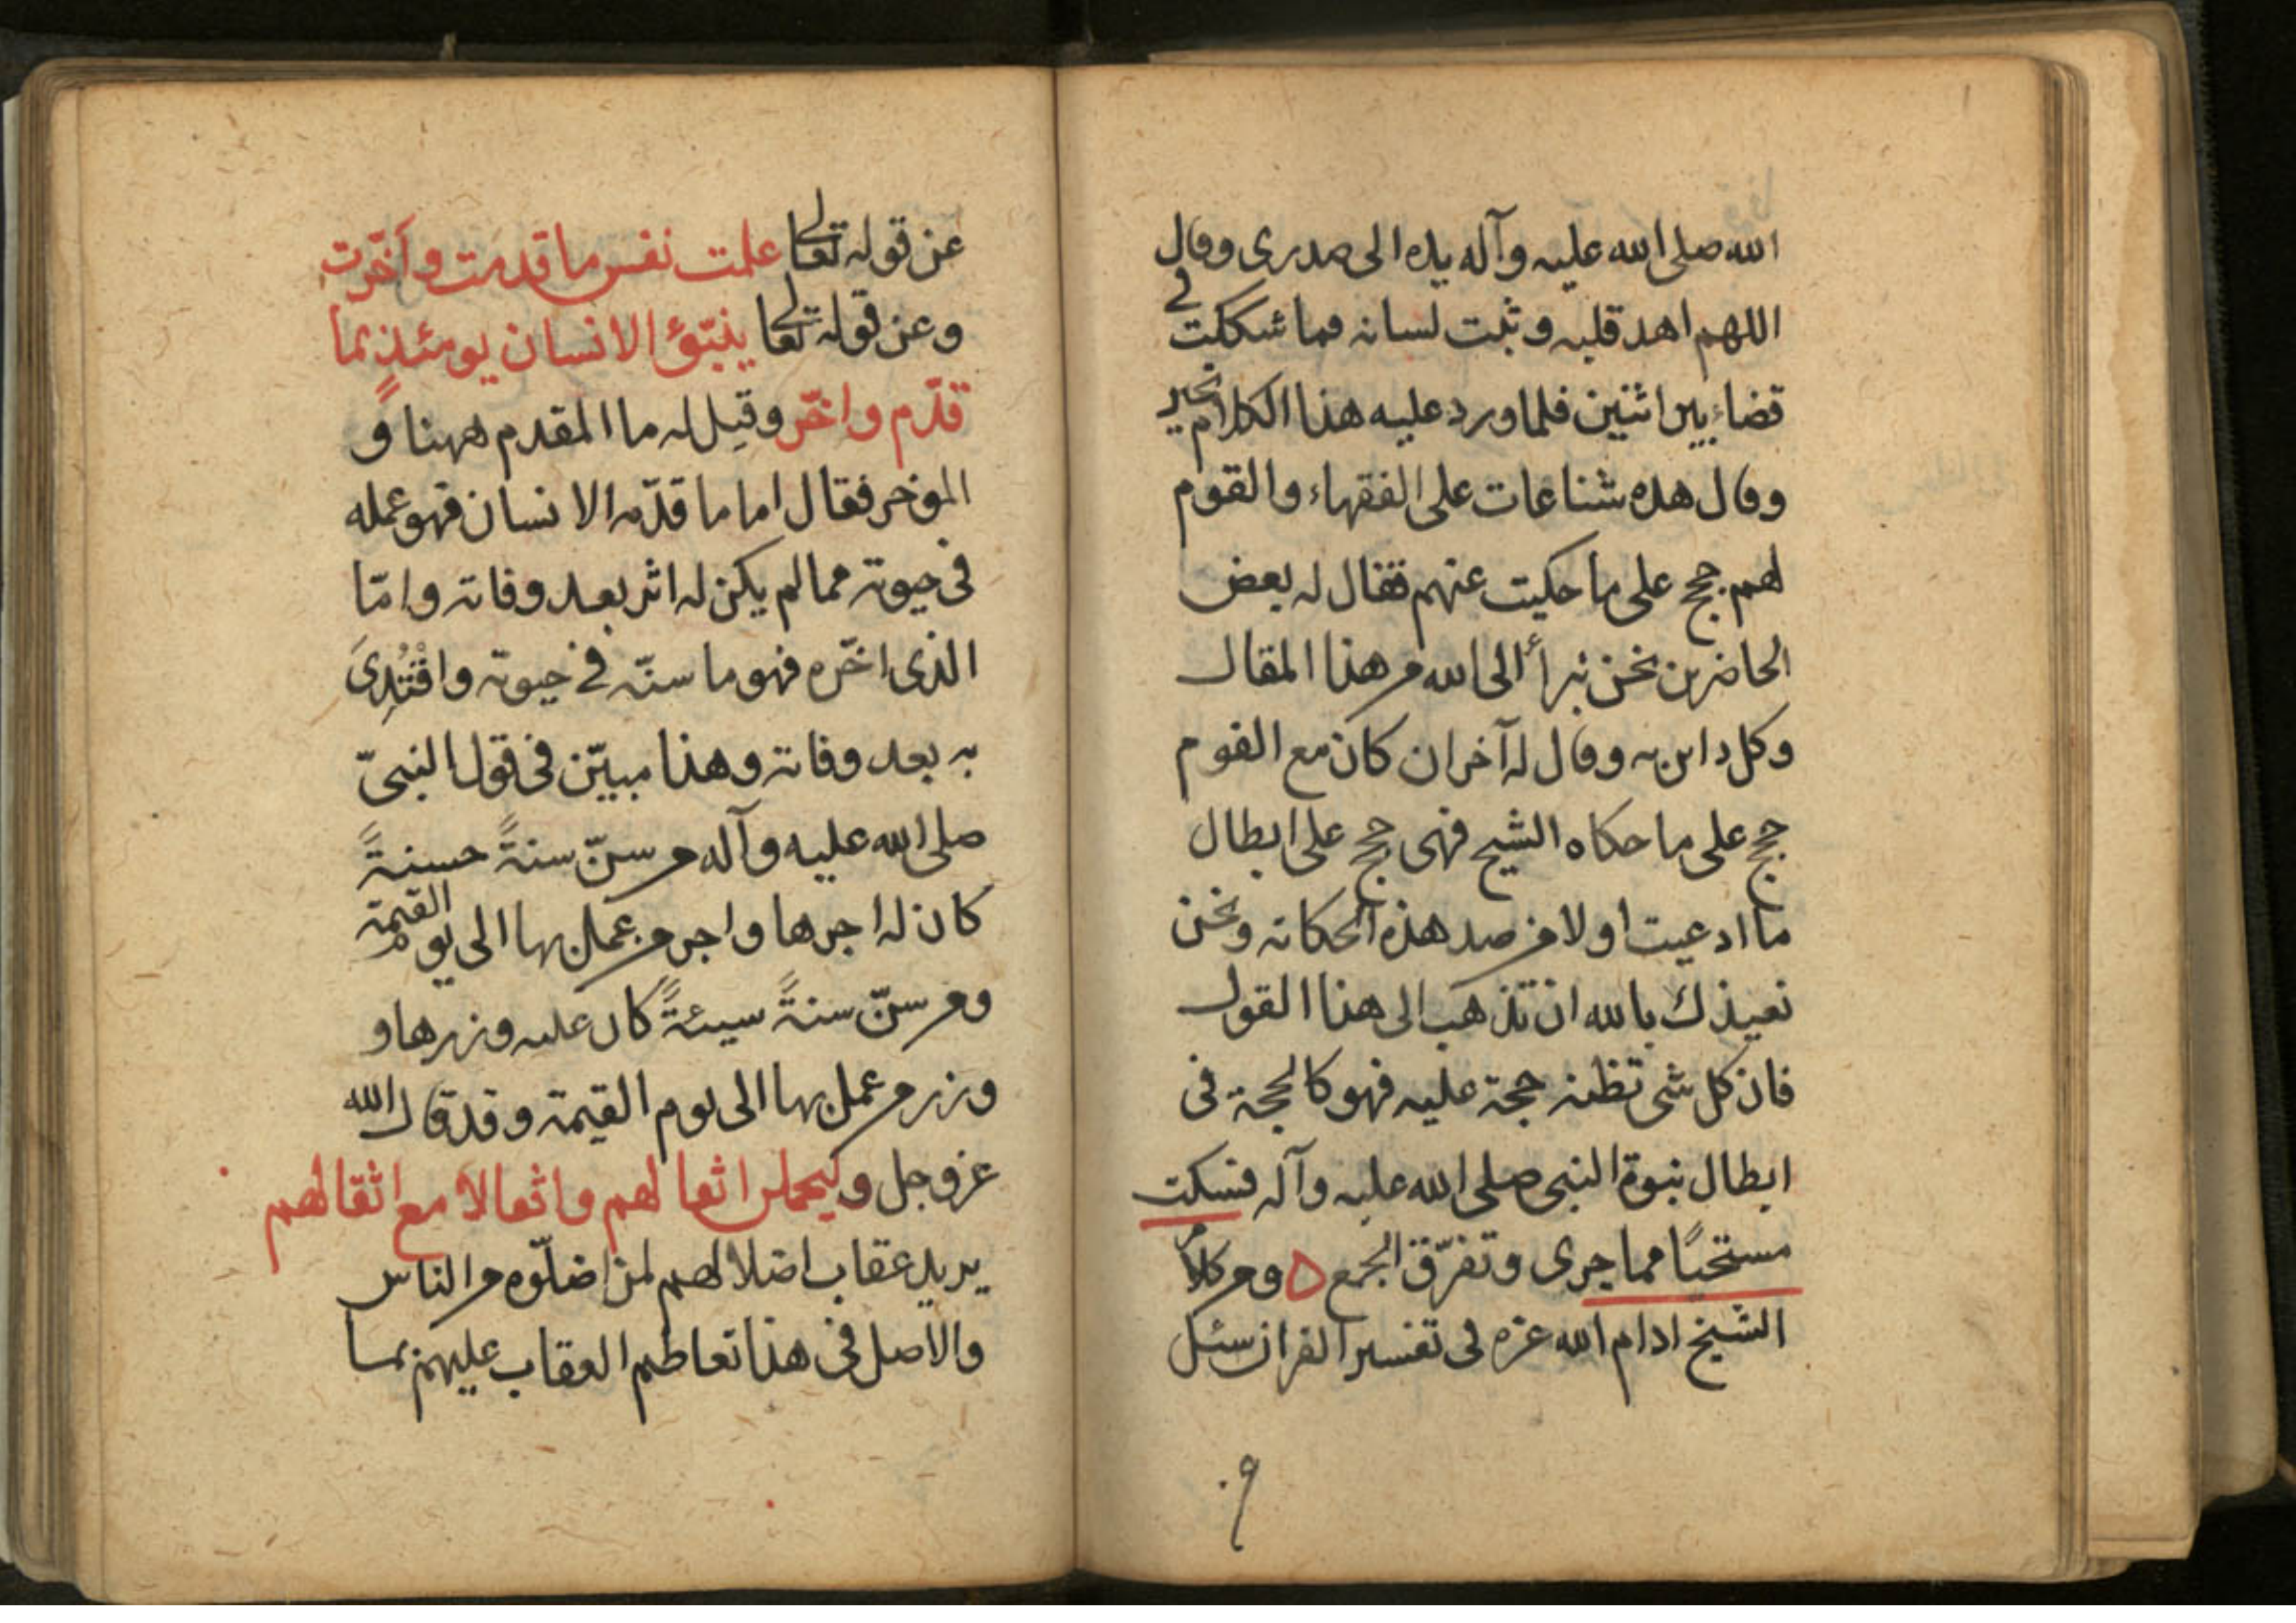 الله صلى الله عليه وآله يده الى صدرى وقال
اللهم اهد قلبه وثبت لسانه فما شككت فى
قضاء بين اثنين فلما ورد عليه هذا الكلام تحير
وقال هذه شناعات على الفقهاء والقوم
لهم حجج على ما حكيت عنهم فقال له بعض
الحاضرين نحن نبرأ الى الله من هذا المقال
وكل دائن به وقال له آخر ان كان مع القوم
حجج على ما حكاه الشيخ فهى حجج على ابطال
ما ادعيت اولا من ضد هذه الحكاية ونحن
نعيذك بالله ان تذهب الى هذا القول
فان كل شى تظنه حجة عليه فهو كالحجة فى
ابطال نبوة النبى صلى الله عليه وآله فسكت
مستحيًا مما جرى وتفرّق الجمع ومن كلام
الشيخ ادام الله عزه فى تفسير القران سئل
٩
عن قوله تعالى علمت نفس ما قدمت وأخّرت
وعن قوله تعالى ينبّؤ الانسان يومئذٍ بما
قدّم واخّر وقيل له ما المقدم ههنا و
المؤخر فقال اما ما قدّمه الانسان فهو عمله
فى حيوته مما لم يكن له اثر بعد وفاته وامّا
الذى اخّره فهو ما سنّه فى حيوته واقْتُدِىَ
به بعد وفاته وهذا مبيّن فى قول النبىّ
صلى الله عليه وآله من سنّ سنةً حسنةً
كان له اجرها واجر من عمل بها الى يوم القيمة
ومن سنّ سنةً سيئةً كان عليه وزرها و
وزر من عمل بها الى يوم القيمة وقد قال الله
عز وجل وليحملن اثقالهم واثقالا مع اثقالهم
يريد عقاب اضلالهم لمن اضلّوه من الناس
والاصل فى هذا تعاظم العقاب عليهم بما